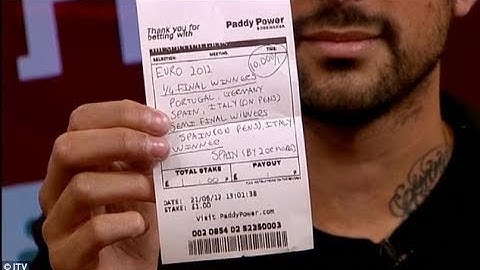 Thank you for
betting with
Paddy Power
BOOKMAKER
SELECTION: MEETING: TIME:
EURO 2012 10,000/1
1/4 FINAL WINNERS
PORTUGAL, GERMANY
SPAIN, ITALY (ON PENS)
SEMI FINAL WINNERS
SPAIN (ON PENS), ITALY
WINNER
SPAIN (BY 2 OR MORE)
TOTAL STAKE PAYOUT
£ 1 00 £
DATE: 21/06/12 13:01:38
STAKE: £1.00
Visit PaddyPower.com
002 0854 02 52350003
© ITV